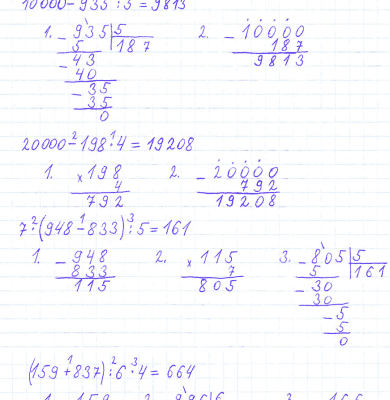 10000 - 935 : 5 = 9813
1. - 935 | 5
5 | 187
- 43
40
- 35
35
0
2. - 10000
187
9813
20000 - 198 · 4 = 19208
1. × 198
4
792
2. - 20000
792
19208
7 · (948 - 833) : 5 = 161
1. - 948
833
115
2. × 115
7
805
3. - 805 | 5
5 | 161
- 30
30
- 5
5
0
(159 + 837) : 6 · 4 = 664
1. 159 2. 996 | 6 3. 166